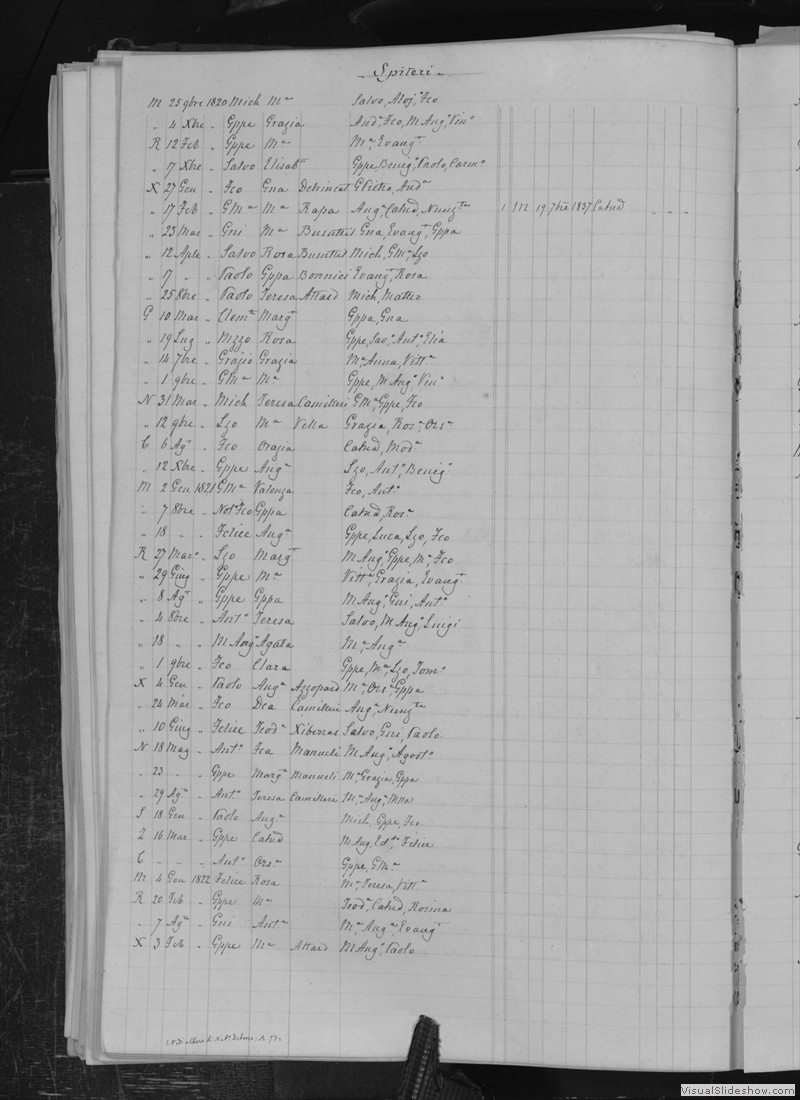 Spiteri
M 25 9bre 1820 Mich Mª Salvo, Alojº, Fco
„ 4 Xbre „ Gppe Grazia Andª, Fco, M Angª, Vinº
R 12 Feb „ Gppe Mª Mª, Evangª
„ 17 Xbre „ Salvo Elisabª Gppe, Benegª, Paolo, Carmª
X 27 Gen „ Fco Gna Debincat G Pietro, Andª
„ 17 Feb „ G Mª Mª Rapa Angª, Catnd, Nunzta 1 M 19 7bre 1837 Catnd „ „ „
„ 23 Mar „ Gni Mª Busuttil Gna, Evangª, Gppa
„ 12 Aple „ Salvo Rosa Busuttil Mich, G Mª, Lzo
„ 17 „ „ Paolo Gppa Bonnici Evangª, Rosa
„ 25 8bre „ Paolo Teresa Attard Mich, Matteo
G 10 Mar „ Clemª Margª Gppa, Gna
„ 19 Lug „ Nzzo Rosa Gppe, Savª, Antª, Elia
„ 14 7bre „ Grazio Grazia Mª, Anna, Vittª
„ 1 9bre „ G Mª Mª Gppe, M Angª, Vinº
N 31 Mar „ Mich Teresa Camilleri G Mª, Gppe, Fco
„ 12 9bre „ Lzo Mª Vella Grazia, Rosª, Orsª
C 6 Agº „ Fco Orazia Catnd, Modª
„ 12 Xbre „ Gppe Angª Lzo, Antº, Benegª
M 2 Gen 1821 G Mª Valenza Fco, Antº
„ 7 8bre „ Notº Fco Gppa Catnd, Rosª
„ 18 „ „ Felice Angª Gppe, Luca, Lzo, Fco
R 27 Marº „ Lzo Margª M Angª, Gppe, Mª, Fco
„ 29 Giug „ Gppe Mª Vittª, Grazia, Evangª
„ 8 Agº „ Gppe Gppa M Angª, Gni, Antª
„ 4 8bre „ Antº Teresa Salvo, M Angª, Luigi
„ 18 „ „ M Angº Agata Mª, Angª
„ 1 9bre „ Fco Clara Gppe, Mª, Lzo, Tomº
X 4 Gen „ Paolo Angª Azzopard Mª, Orsª, Gppa
„ 24 Mar „ Fco Dea Camilleri Angª, Nunzta
„ 10 Giug „ Felice Teodª Xiberras Salvo, Gni, Paolo
N 18 Mag „ Antº Fca Manueli M Angª, Agostº
„ 23 „ „ Gppe Margª Manueli Mª, Grazia, Gppa
„ 29 Agº „ Antº Teresa Camilleri Mª, Angª
S 18 Gen „ Paolo Angª Mich, Gppe, Fco
Z 16 Mar „ Gppe Catnd M Ang, Felice
C „ „ „ Antº Orsª Gppe, G Mª
M 4 Gen 1822 Felice Rosa Mª, Teresa, Vittª
R 20 Feb „ Gppe Mª Teodª, Catnd, Rosina
„ 7 Agº „ Gni Antª Mª, Angª, Evangª
X 3 Feb „ Gppe Mª Attard M Angª, Paolo
VisualSlideshow.com